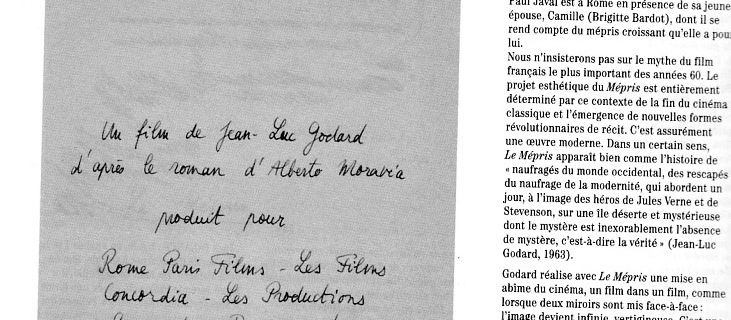 Un film de Jean-Luc Godard
d'après le roman d'Alberto Moravia
produit pour
Rome Paris Films - Les Films
Concordia - Les Productions
Paul Javal est à Rome en présence de sa jeune
épouse, Camille (Brigitte Bardot), dont il se
rend compte du mépris croissant qu'elle a pour
lui.
Nous n'insisterons pas sur le mythe du film
français le plus important des années 60. Le
projet esthétique du Mépris est entièrement
déterminé par ce contexte de la fin du cinéma
classique et l'émergence de nouvelles formes
révolutionnaires de récit. C'est assurément
une œuvre moderne. Dans un certain sens,
Le Mépris apparaît bien comme l'histoire de
« naufragés du monde occidental, des rescapés
du naufrage de la modernité, qui abordent un
jour, à l'image des héros de Jules Verne et de
Stevenson, sur une île déserte et mystérieuse
dont le mystère est inexorablement l'absence
de mystère, c'est-à-dire la vérité » (Jean-Luc
Godard, 1963).
Godard réalise avec Le Mépris une mise en
abime du cinéma, un film dans un film, comme
lorsque deux miroirs sont mis face-à-face :
l'image devient infinie, vertigineuse. C'est une